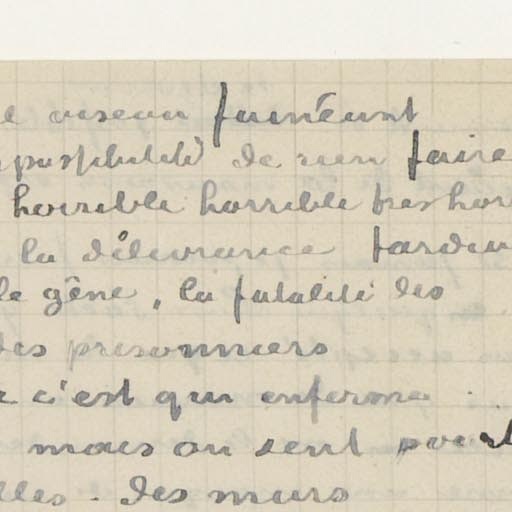 oiseau fainéant
de rien faire
horrible horrible très
la délivrance tardive
gêne, la fatalité des
des prisonniers
c'est qui enferme
mais on sent
des murs